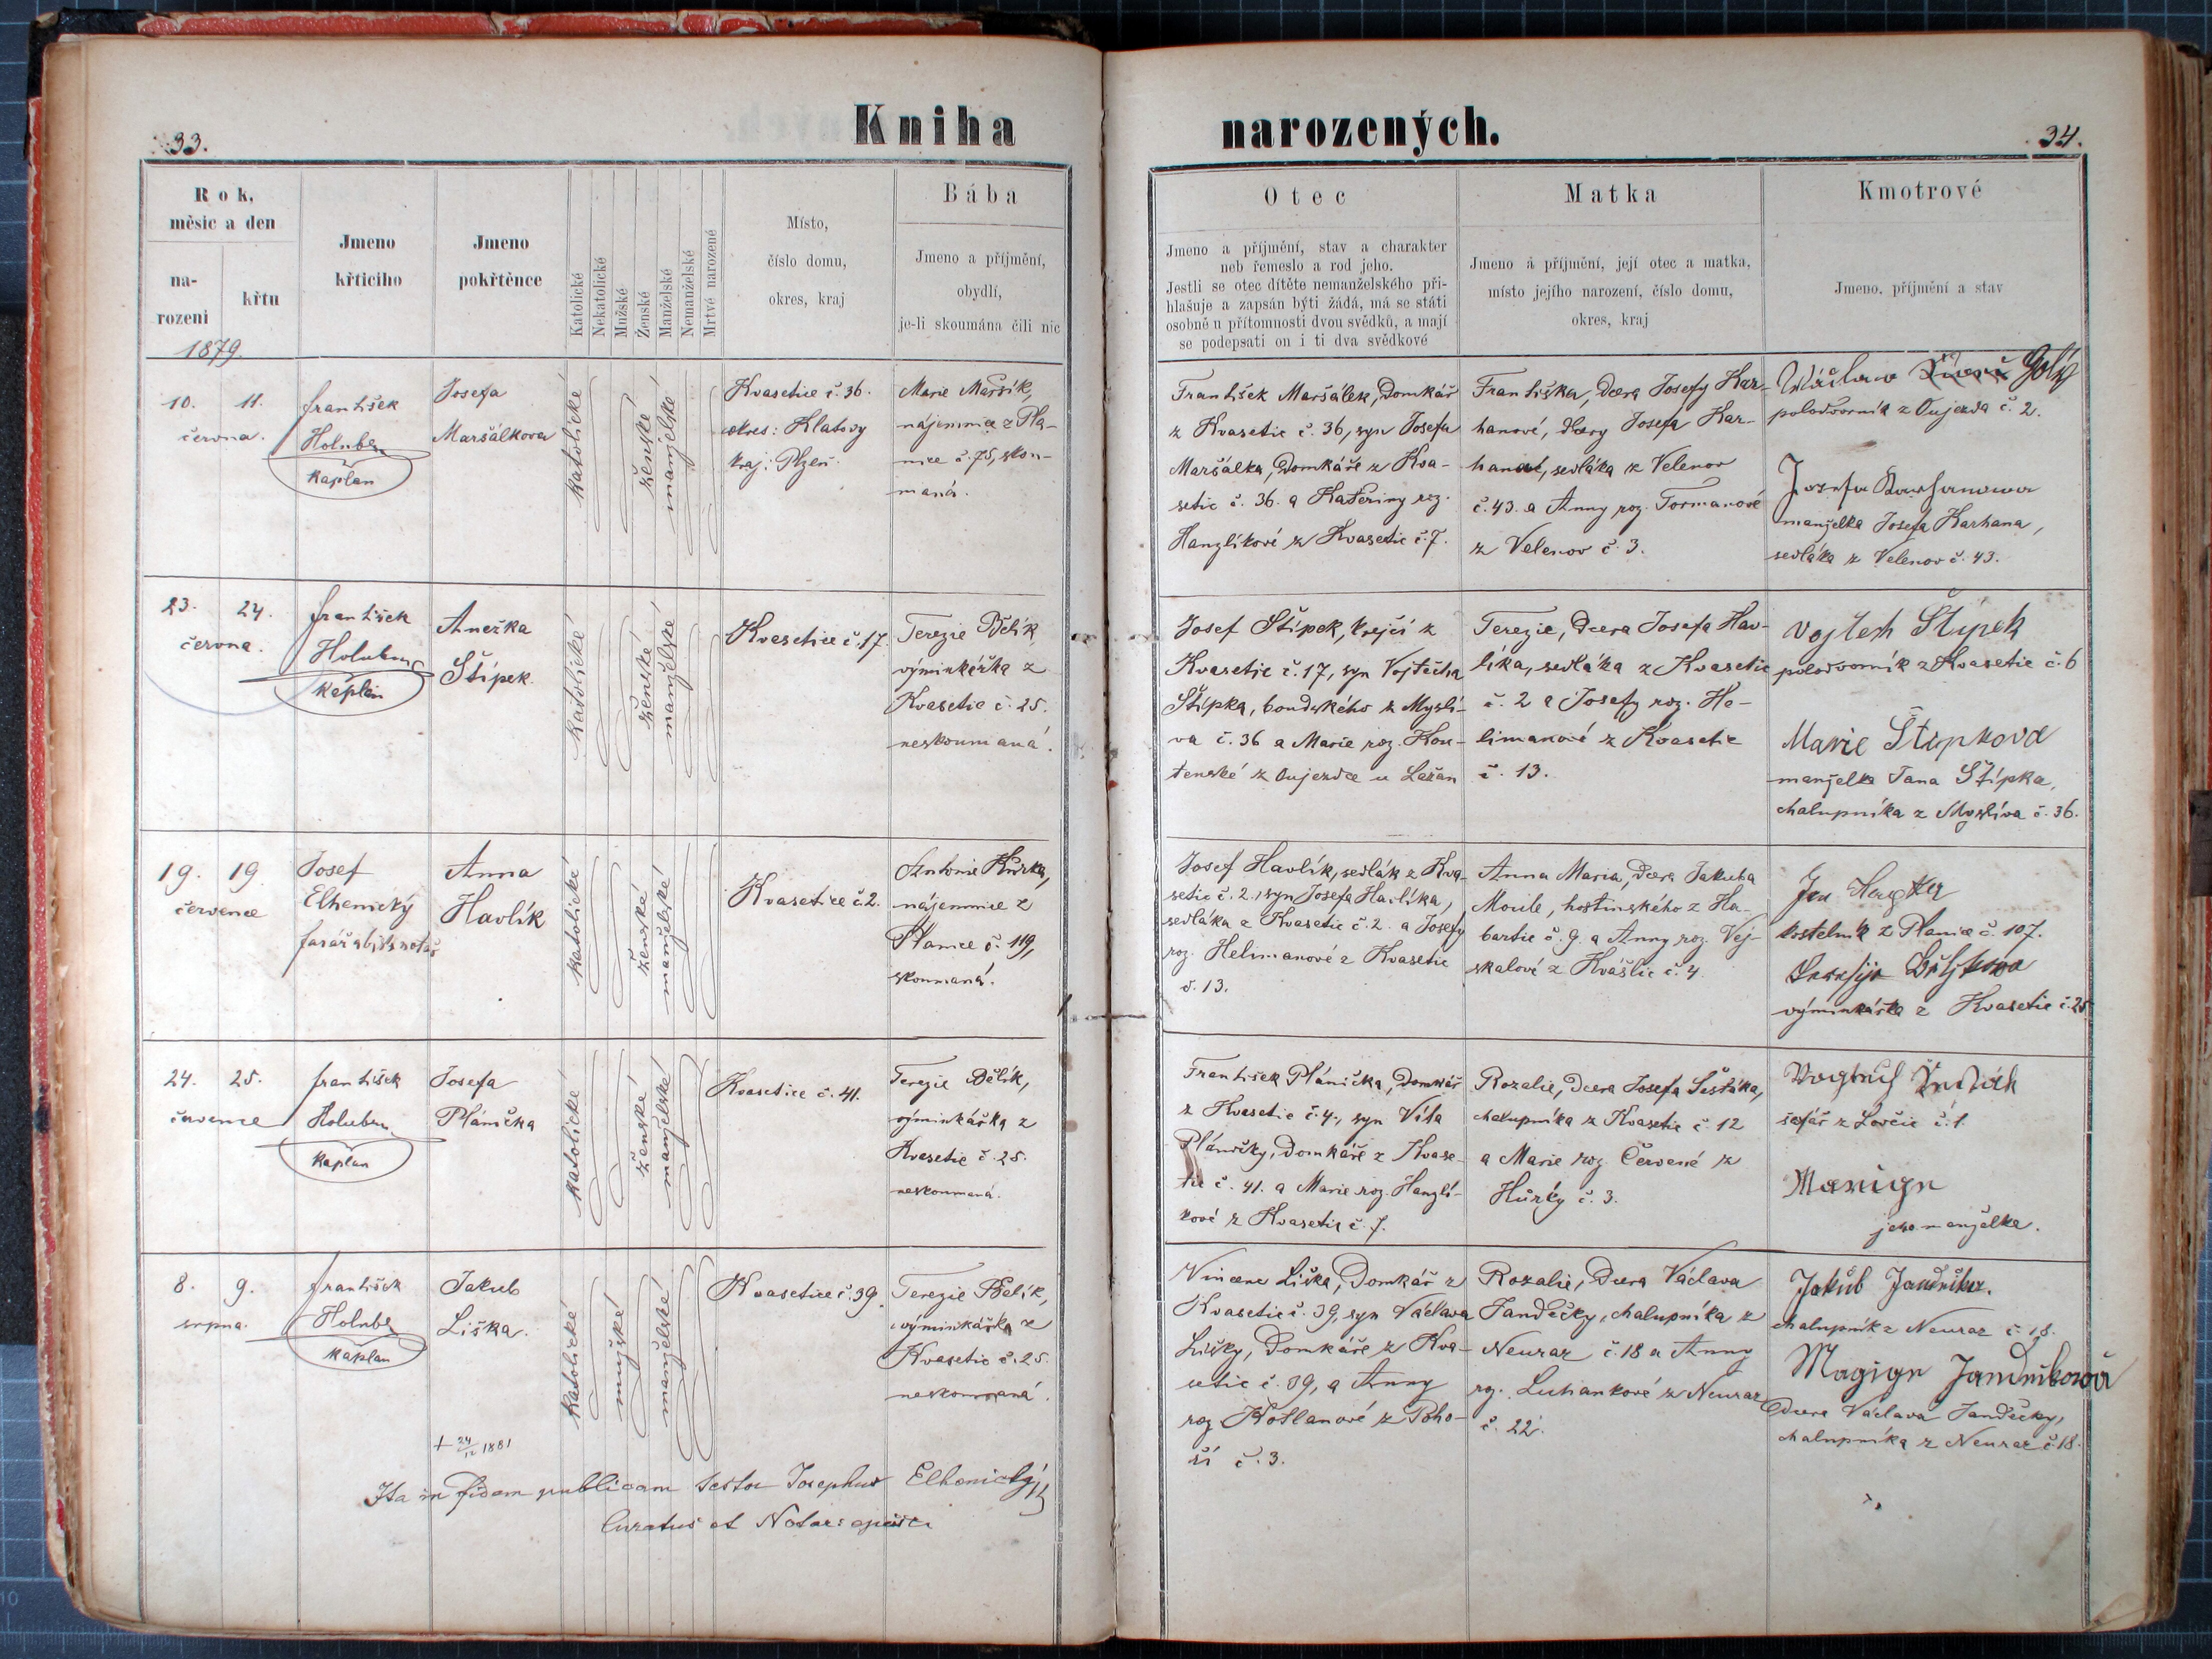 33.
Kniha
Rok,
měsíc a den
na-
rozeni
křtu
Jmeno
křticiho
Jmeno
pokřtěnce
Katolické
Nekatolické
Mužské
Ženské
Manželské
Nemanželské
Mrtvě narozené
Místo,
číslo domu,
okres, kraj
Bába
Jmeno a příjmění,
obydlí,
je-li skoumána čili nic
1879.
10. 11.
června.
František
Holub
kaplan
Josefa
Maršálkova
katolické
ženské
manželské
Kvasetice č. 36.
okres: Klatovy
kraj: Plzeň.
Marie Maršík,
nájemnice z Pla-
nice č. 75, skou-
maná.
23. 24.
června.
František
Holub
kaplan
Anežka
Štípek.
katolické
ženské
manželské
Kvasetice č. 17.
Terezie
výminkářka z
Kvasetic č. 25.
neskoumaná.
19. 19.
července
Josef
Elhenický
farář a bisk. notář
Anna
Havlík
katolické
ženské
manželské
Kvasetice č. 2.
Antonie
nájemnice z
Planice č. 119,
skoumaná.
24. 25.
července
František
Holub
kaplan
Josefa
Plánička
katolické
ženské
manželské
Kvasetice č. 41.
Terezie Bělík,
výminkářka z
Kvasetic č. 25.
neskoumaná.
8. 9.
srpna.
František
Holub
kaplan
Jakub
Liška.
katolické
mužské
manželské
Kvasetice č. 39.
Terezie Bělík,
výminkářka z
Kvasetic č. 25.
neskoumaná.
+ 24/12 1881
Ita in fidem publicam testor Josephus Elhenický
Curatus et Notar:
narozených.
34.
Otec
Jmeno a příjmění, stav a charakter
neb řemeslo a rod jeho.
Jestli se otec dítěte nemanželského při-
hlašuje a zapsán býti žádá, má se státi
osobně u přítomnosti dvou svědků, a mají
se podepsati on i ti dva svědkové
Matka
Jmeno a příjmění, její otec a matka,
místo jejího narození, číslo domu,
okres, kraj
Kmotrové
Jmeno, příjmění a stav
František Maršálek, Domkář
z Kvasetic č. 36, syn Josefa
Maršálka, Domkáře z Kva-
setic č. 36. a Kateřiny roz.
Hanzlíkové z Kvasetic č. 7.
Františka, Dcera Josefy Kar-
hanové, dcery Josefa Kar-
hana, sedláka z Velenov
č. 43. a Anny roz. Tormanové
z Velenov č. 3.
Wáclaw
polodvorník z Oujezda č. 2.
Josefa Karhanowa
manželka Josefa Karhana,
sedláka z Velenov č. 43.
Josef Štípek, krejčí z
Kvasetic č. 17, syn Vojtěcha
Štípka, boudského z Mysli-
va č. 36 a Marie roz. Kou-
tenské z Oujezdce u Ležan
Terezie, Dcera Josefa Hav-
líka, sedláka z Kvasetic
č. 2 a Josefy roz. He-
limanové z Kvasetic
č. 13.
Vojtěch Štípek
polodvorník z Kvasetic č. 6
Marie Štípkova
manželka Jana Štípka,
chalupníka z Myslíva č. 36.
Josef Havlík, sedlák z Kva-
setic č. 2, syn Josefa Havlíka,
sedláka z Kvasetic č. 2. a Josefy
roz. Helimanové z Kvasetic
č. 13.
Anna Maria, Dcera Jakuba
Moule, hostinského z Ha-
bartic č. 9. a Anny roz. Vej-
skalové z Kvášlic č. 4.
Jan
kostelník z Planice č. 107.
výminkářka z Kvasetic č. 25
František Plánička, Domkář
z Kvasetic č. 4., syn Víta
Pláničky, Domkáře z Kvase-
tic č. 41. a Marie roz. Hanzlí-
kové z Kvasetic č. 7.
Rozalie, Dcera Josefa Šestáka,
chalupníka z Kvasetic č. 12
a Marie roz. Červené z
Hůrky č. 3.
šafář z Lovčic č. 1.
Marign
jeho manželka.
Vincenc Liška, Domkář z
Kvasetic č. 39, syn Václava
Lišky, Domkáře z Kva-
setic č. 39, a Anny
roz. Kotlanové z Poho-
ří č. 3.
Rozalie, Dcera Václava
Jandečky, chalupníka z
Neuraz č. 18 a Anny
roz. Luhankové z Neuraz
č. 22.
Jakub
chalupník z Neuraz č. 18.
Dcera Václava Jandečky,
chalupníka z Neuraz č. 18.